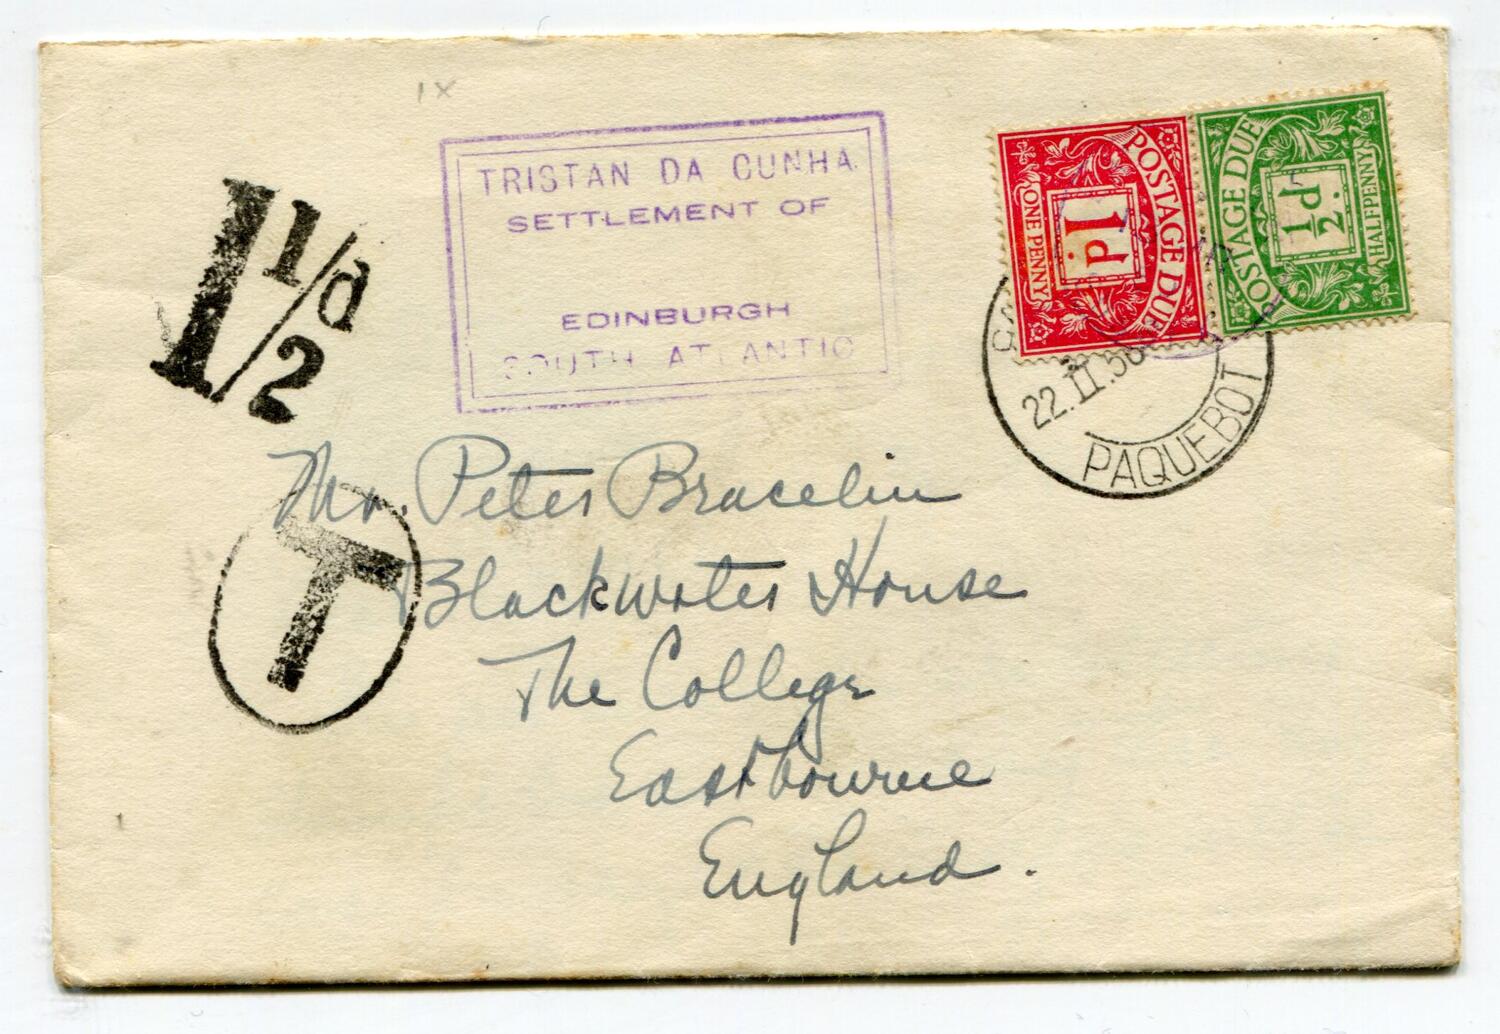 1X
TRISTAN DA CUNHA
SETTLEMENT OF
EDINBURGH
SOUTH ATLANTIC
POSTAGE DUE
1d
ONE PENNY
POSTAGE DUE
½d.
HALFPENNY
22.II.56
PAQUEBOT
1 1/2 d
T
Mr. Peter Bracelin
Blackwater House
The College
Eastbourne
England.